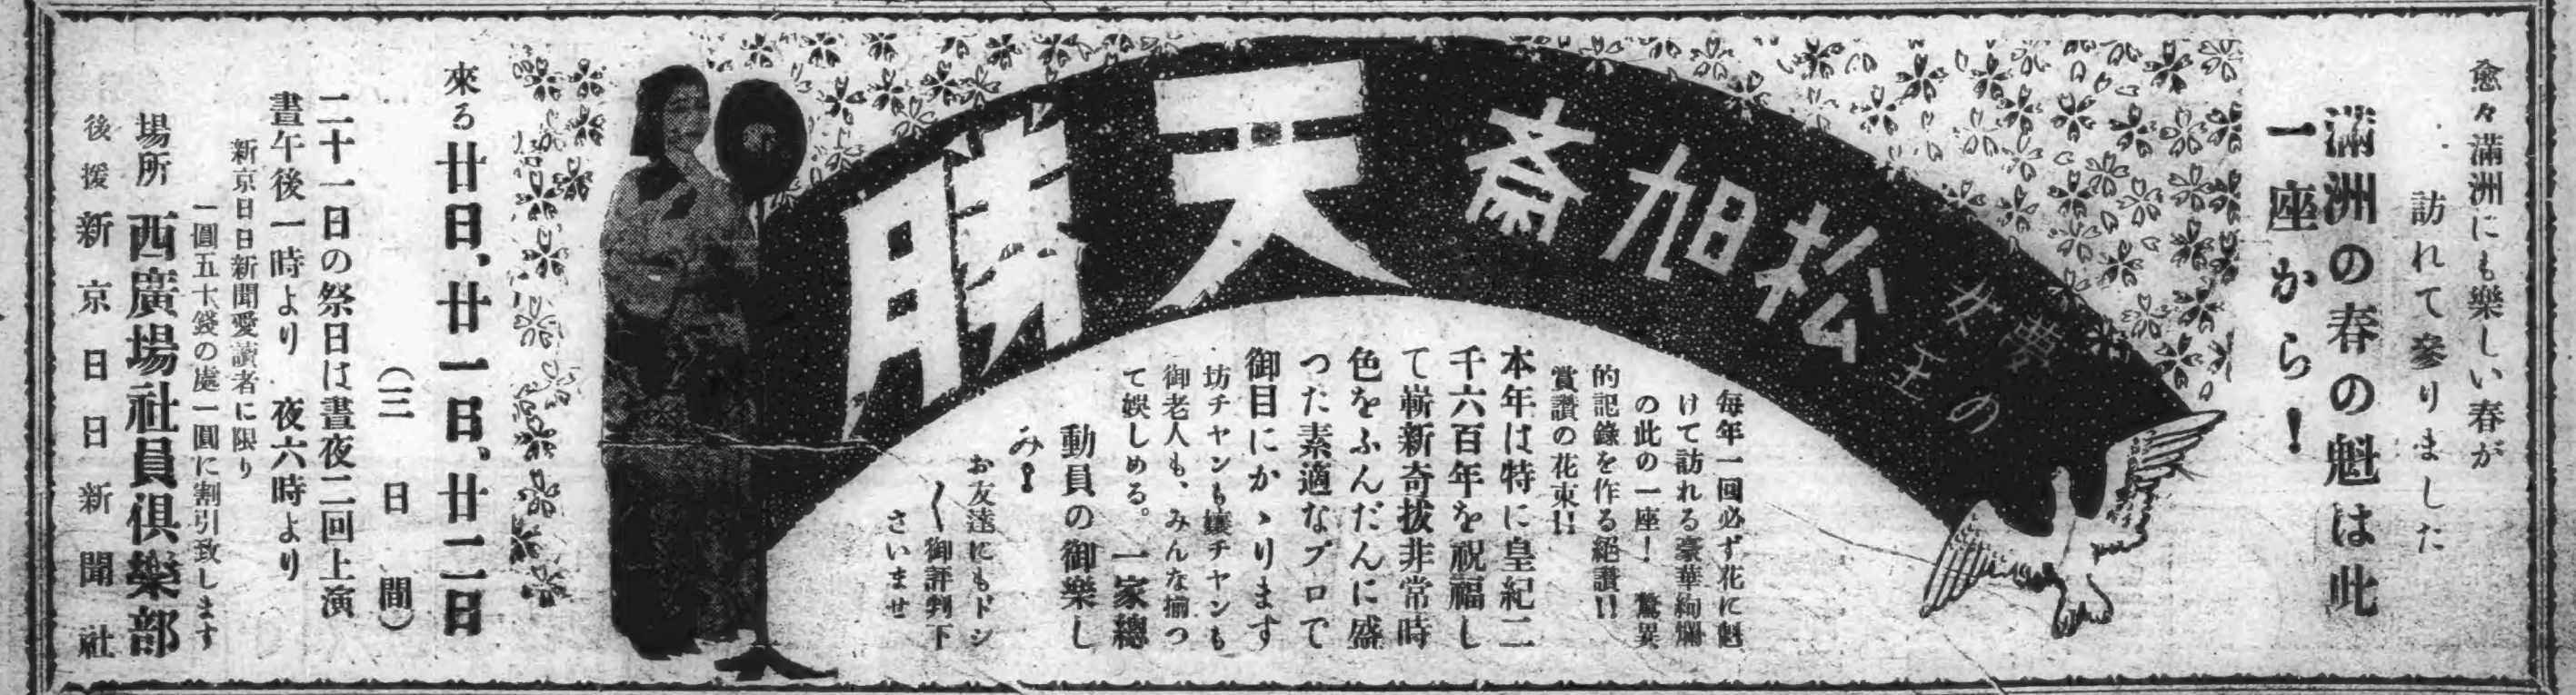 愈々滿洲にも樂しい春が
訪れて參りました
滿洲の春の魁は此
一座から!
夢の
女王
松旭斎
天勝
毎年一回必ず花に魁
けて訪れる豪華絢爛
の此の一座! 驚異
的記錄を作る絕讃!!
賞讃の花束!!
本年は特に皇紀二
千六百年を祝福し
て嶄新奇拔非常時
色をふんだんに盛
つた素適なプロで
御目にかゝります
坊チヤンも孃チヤンも
御老人も、みんな揃つ
て娯しめる。一家總
動員の御樂し
み!
お友達にもドシ
〱御評判下
さいませ
來る廿日、廿一日、廿二日
(三日間)
二十一日の祭日は晝夜二回上演
晝午後一時より 夜六時より
新京日日新聞愛讀者に限り
一圓五十錢の處一圓に割引致します
場所 西廣場社員俱樂部
後援 新京日日新聞社